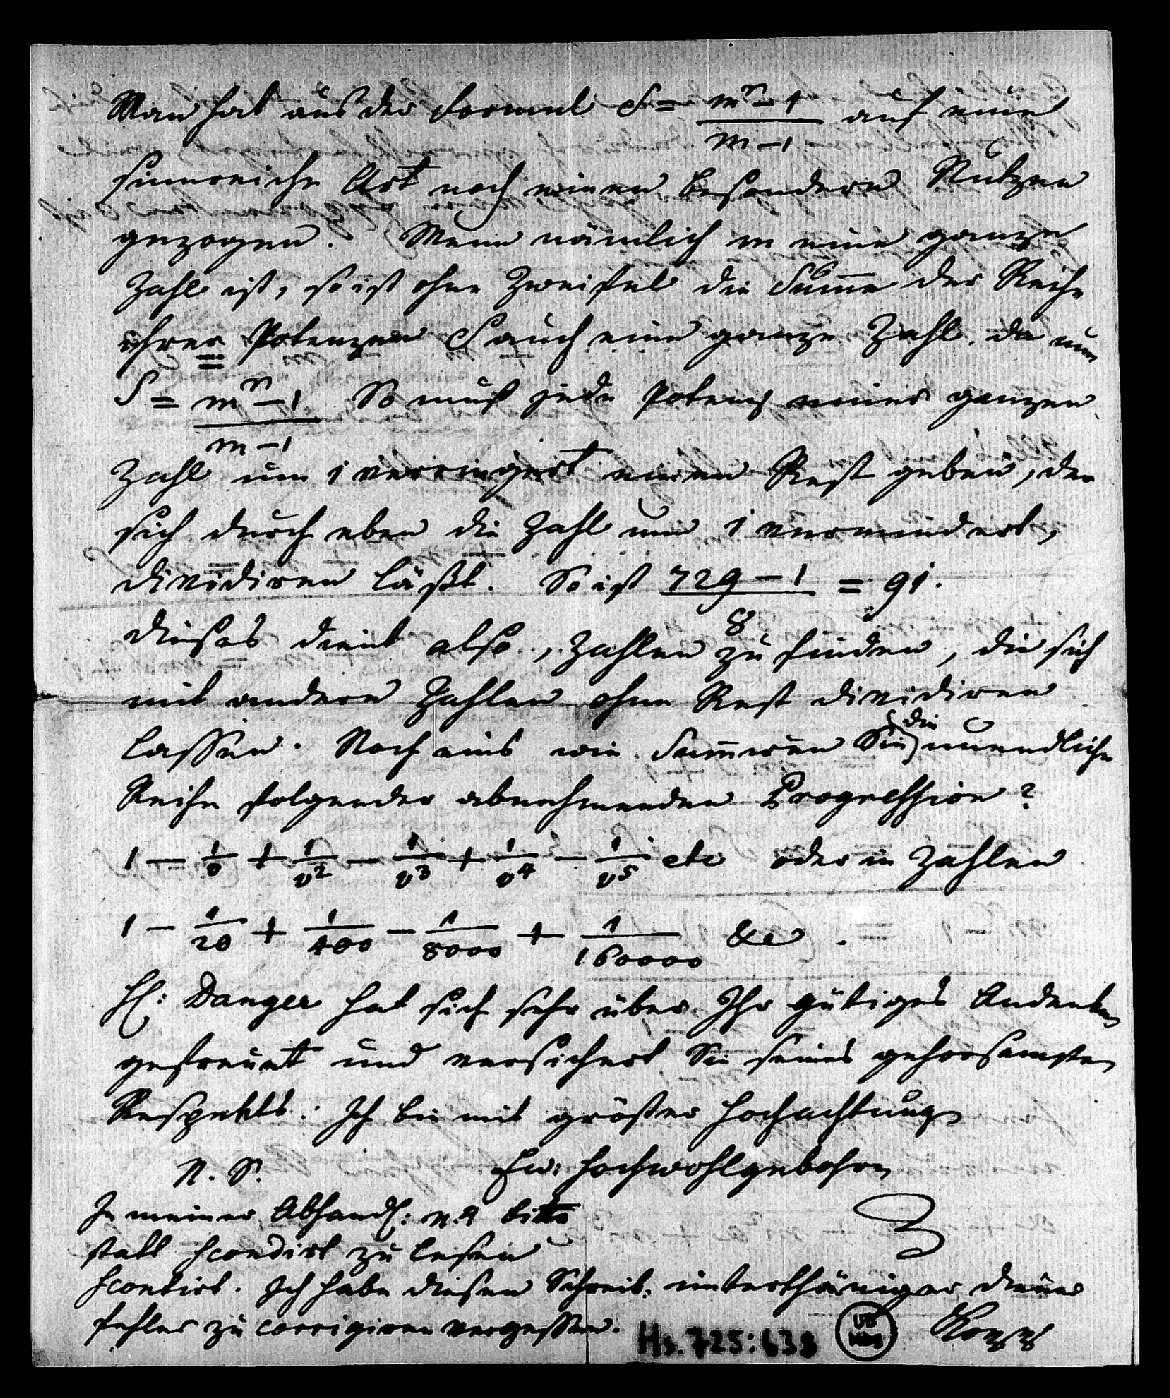 Man hat aus der Formul S = m^n - 1 / m - 1 auf eine
sinnreiche Art noch einen besondern Nutzen
gezogen. Wenn nämlich m eine ganze
Zahl ist, so ist ohne Zweifel die Summe der Reihe
ihrer Potenzen S auch eine ganze Zahl. da nun
S = m^n - 1 / m - 1 So muß jede Potenz einer ganzen
Zahl um 1 verringert einen Rest geben, der
sich durch eben die Zahl um 1 vermindert,
dividiren läßt. So ist 729 - 1 / 8 = 91.
Dieses dient also, Zahlen zu finden, die sich
mit andern Zahlen ohne Rest dividiren
lassen. Noch eins wie summiren Sie die unendliche
Reihe folgender abnehmenden Progression?
1 - 1/v + 1/v² - 1/v³ + 1/v⁴ - 1/v⁵ etc oder in Zahlen
1 - 1/20 + 1/400 - 1/8000 + 1/160000 &c.
H: Danger hat sich sehr über Ihr gütiges Andenken
gefreuet und versichert Sie seines gehorsamsten
Respekts. Ich bin mit größter Hochachtung
Ew: Hochwohlgebohrn
N. S.
In meiner Abhandl: n.4 bitte
statt zu lesen
Ich habe diesen Schreib.
fehler zu corrigiren vergessen.
unterthäniger Diener
Hs. 725:639
UB